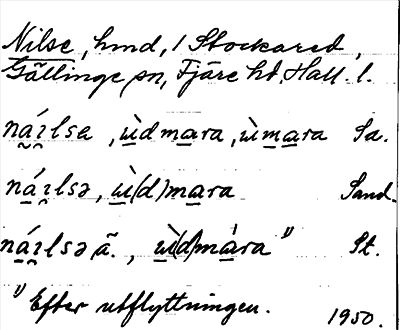 Nilse, hmd, i Stockared,
Gällinge sn, Fjäre hd, Hall. l.
ná̱ɪ̯lse, ù̱dma̱ra, ù̱ma̱ra Sa.
ná̱ɪ̯lsə, ù̱(d)ma̱ra Sand.
ná̱ɪ̯lsə ã., ù̱(d)mà̱ra ¹⁾ St.
¹⁾ Efter utflyttningen.
1950.